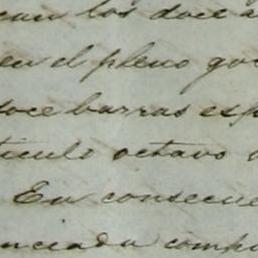 can los doce a
en el pleno go
doce barras esp
ticulo octavo
En consecue
nciada comp